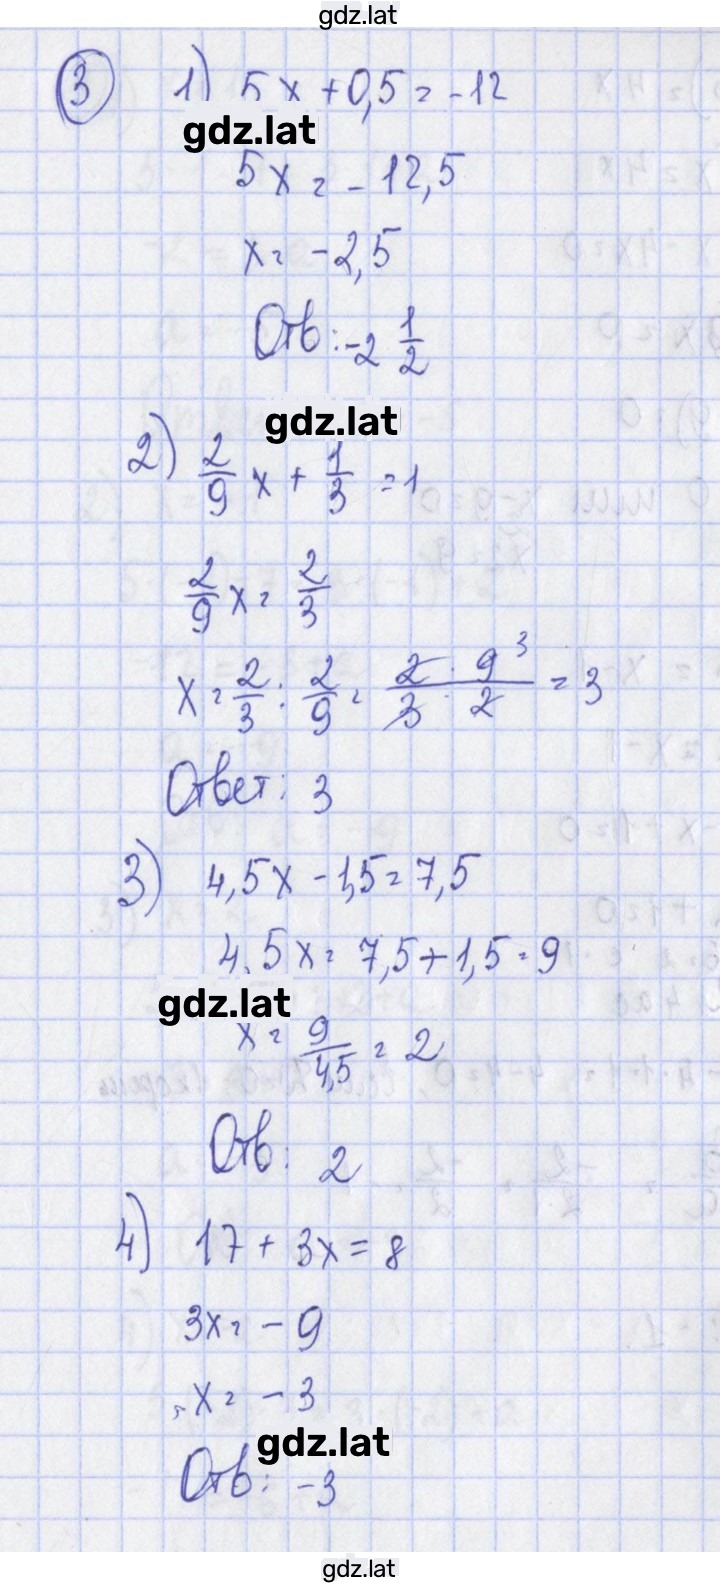 gdz.lat
3 1) 5x + 0,5 = -12
gdz.lat
5x = -12,5
x = -2,5
Отв: -2 1/2
gdz.lat
2) 2/9 x + 1/3 = 1
2/9 x = 2/3
x = 2/3 : 2/9 = 2 · 9 3 / 3 · 2 = 3
Ответ: 3
3) 4,5x - 1,5 = 7,5
4,5x = 7,5 + 1,5 = 9
gdz.lat
x = 9/4,5 = 2
Отв: 2
4) 17 + 3x = 8
3x = -9
x = -3
gdz.lat
Отв: -3
gdz.lat